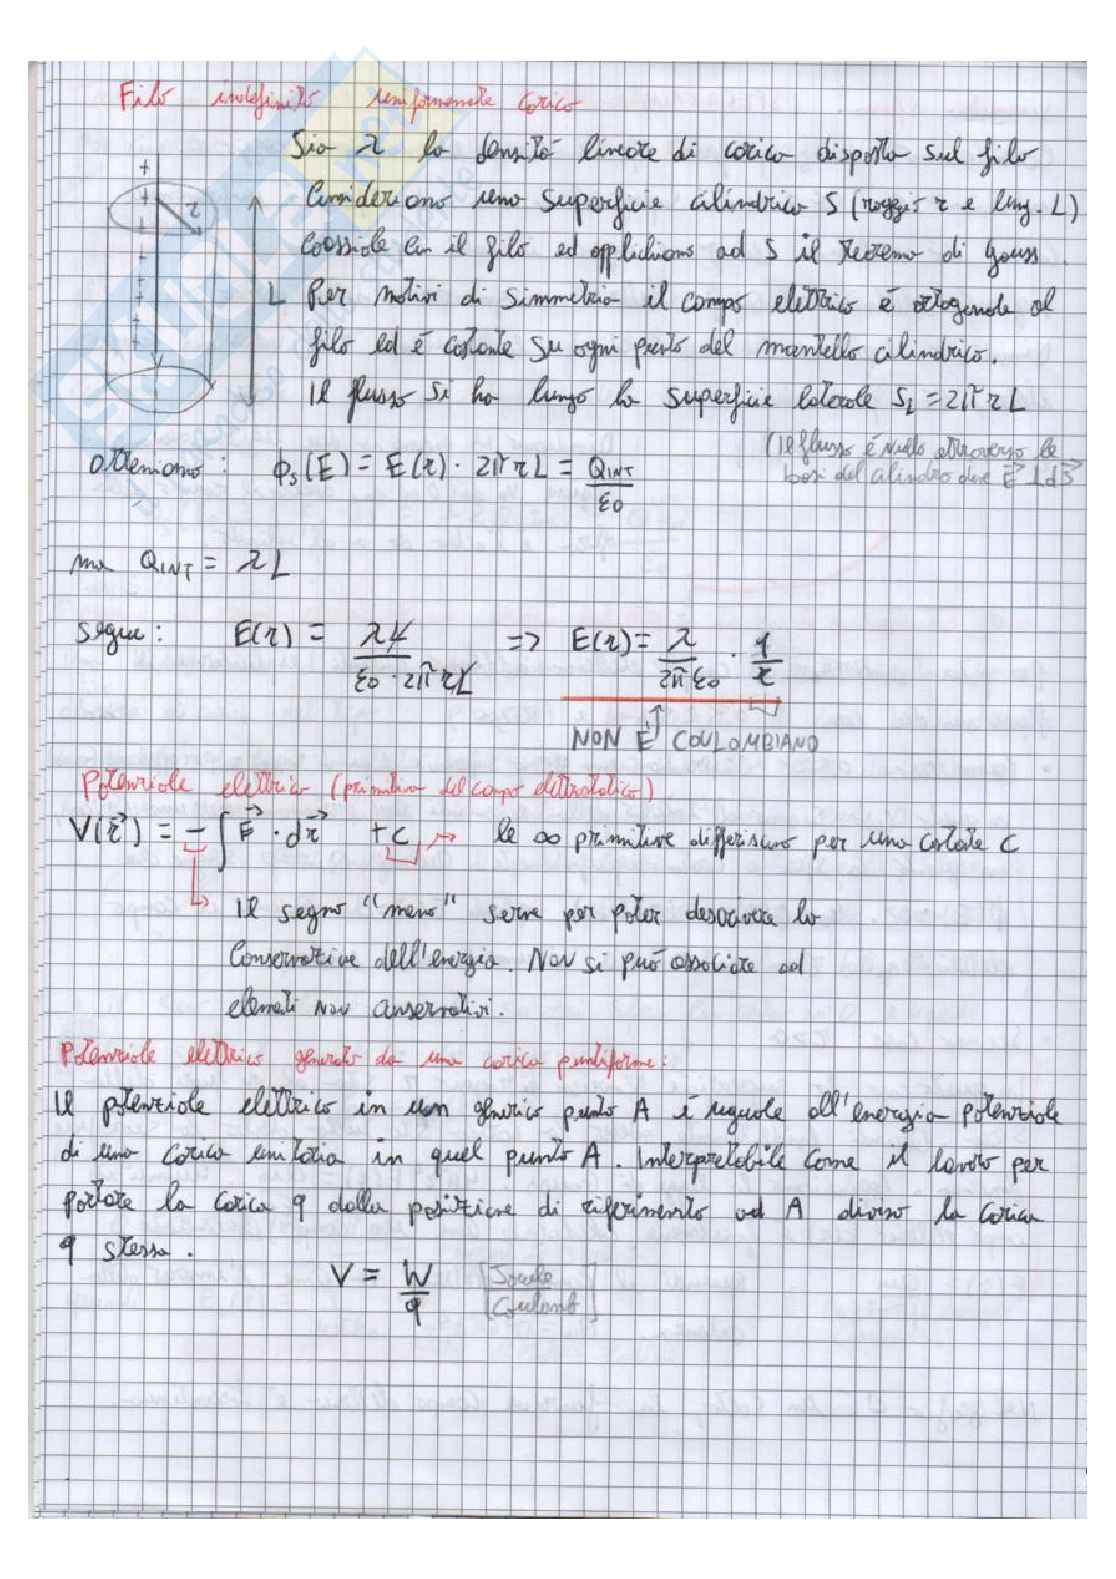 Filo indefinito uniformemente carico
Sia λ la densità lineare di carica disposta sul filo
Consideriamo una superficie cilindrica S (raggio r e lung. L)
coassiale con il filo ed applichiamo ad S il teorema di Gauss.
Per motivi di simmetria il campo elettrico è ortogonale al
filo ed è costante su ogni punto del mantello cilindrico.
Il flusso si ha lungo la superficie laterale S_L = 2π r L
r
L
(Il flusso è nullo attraverso le
basi del cilindro dove E⃗ ⊥ dS⃗
Otteniamo: Φ_S(E) = E(r) · 2π r L = Q_INT / ε0
ma Q_INT = λ L
segue: E(r) = λL / (ε0 · 2π r L) => E(r) = λ / (2π ε0) · 1/r
NON È COULOMBIANO
Potenziale elettrico (primitiva del campo elettrostatico)
V(r⃗) = − ∫ E⃗ · dr⃗ + c → le ∞ primitive differiscono per una costante c
Il segno "meno" serve per poter descrivere la
conservazione dell'energia. Non si può associare ad
elementi non conservativi.
Potenziale elettrico generato da una carica puntiforme:
Il potenziale elettrico in un generico punto A è uguale all'energia potenziale
di una carica unitaria in quel punto A. Interpretabile come il lavoro per
portare la carica q dalla posizione di riferimento ad A diviso la carica
q stessa.
V = W / q [Joule / Coulomb]